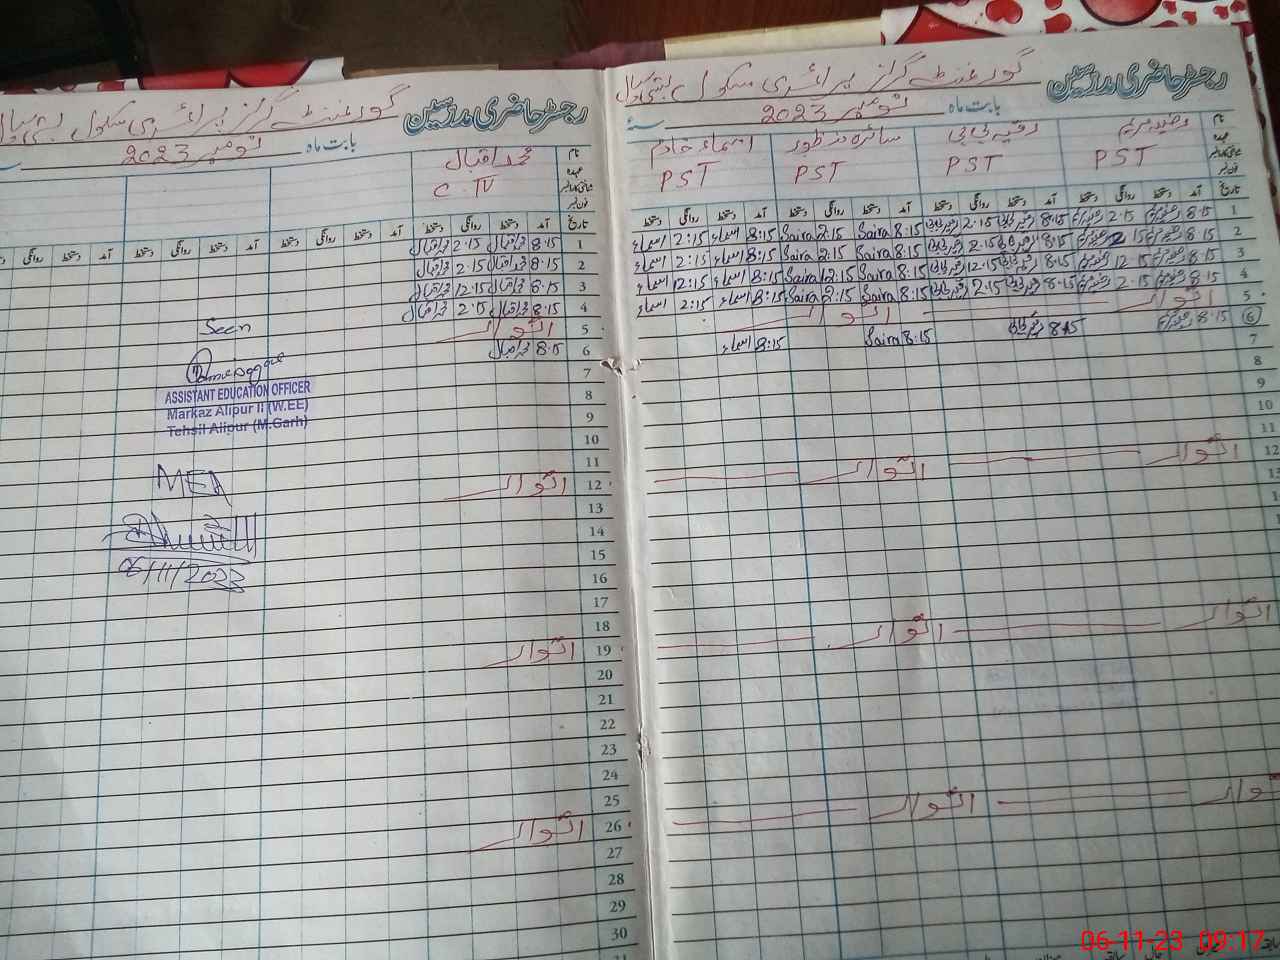 رجسٹر حاضری مدرسین
گورنمنٹ گرلز پرائمری سکول بستی
بابت ماہ نومبر 2023
رضیہ مریم
PST
رقیہ بی بی
PST
سائرہ منظور
PST
اسماء خادم
PST
نام
عہدہ
تاریخ
آمد دستخط روانگی دستخط آمد دستخط روانگی دستخط آمد دستخط روانگی دستخط آمد دستخط روانگی دستخط
1 8.15 2.15 8.15 2.15 8.15 Saira 2:15 Saira 8:15 اسماء 2:15 اسماء
2 8.15 2.15 8.15 2.15 8.15 Saira 2:15 Saira 8:15 اسماء 2:15 اسماء
3 8.15 12.15 8.15 12.15 8.15 Saira 12:15 Saira 8:15 اسماء 12:15 اسماء
4 8.15 2.15 8.15 2.15 8.15 Saira 2:15 Saira 8:15 اسماء 2:15 اسماء
5 اتوار اتوار
6 8.15 8.15 8.15 Saira 8:15 اسماء
7
8
9
10
11
12 اتوار اتوار
اتوار اتوار
اتوار اتوار
رجسٹر حاضری مدرسین
گورنمنٹ گرلز پرائمری سکول بستی
بابت ماہ نومبر 2023
نام
عہدہ
محمد اقبال
C.IV
تاریخ آمد دستخط روانگی دستخط آمد دستخط روانگی دستخط آمد دستخط روانگی دستخط
1 8.15 محمد اقبال 2.15 محمد اقبال
2 8.15 محمد اقبال 2.15 محمد اقبال
3 8.15 محمد اقبال 12.15 محمد اقبال
4 8.15 محمد اقبال 2.15 محمد اقبال
5 اتوار
6 8.15 محمد اقبال
7
8
9
10
11
12 اتوار
13
14
15
16
17
18
19 اتوار
20
21
22
23
24
25
26 اتوار
27
28
29
30
31
Seen
ASSISTANT EDUCATION OFFICER
Markaz Alipur II (W.EE)
Tehsil Alipur (M.Garh)
MEA
06/11/2023
06-11-23 09:17